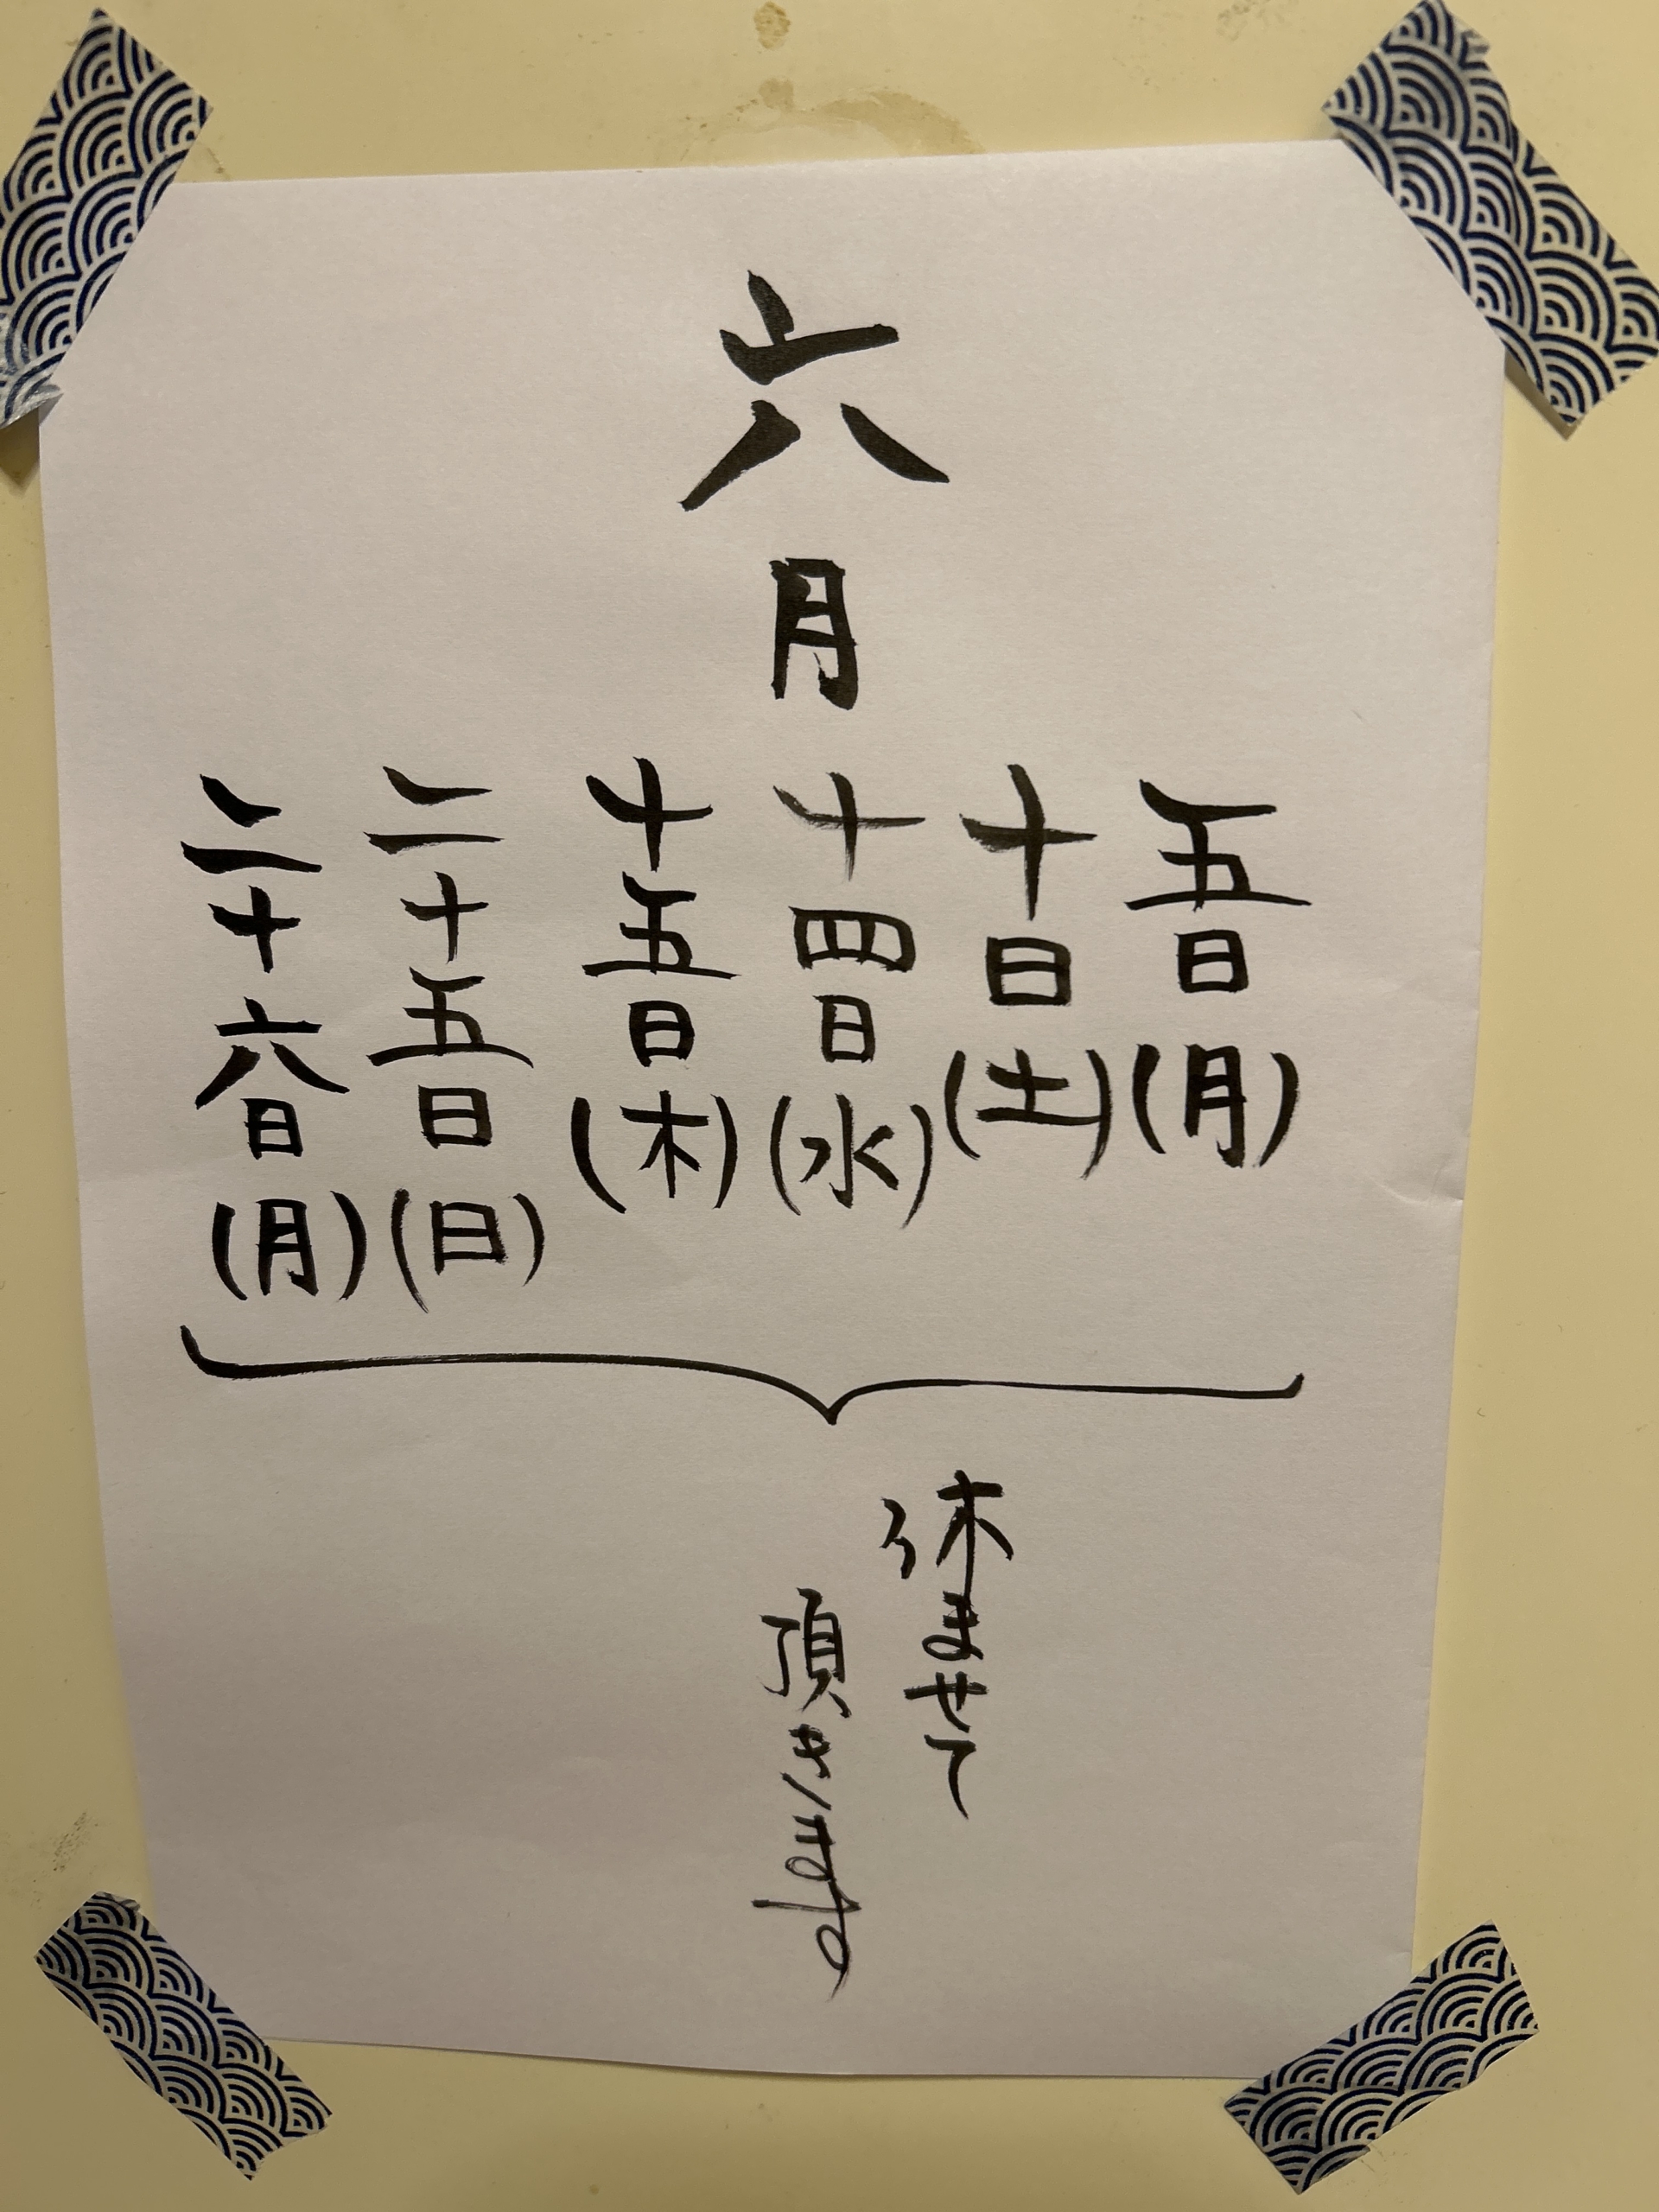 六月
五日(月)
十日(土)
十四日(水)
十五日(木)
二十五日(日)
二十六日(月)
休ませて
頂きます